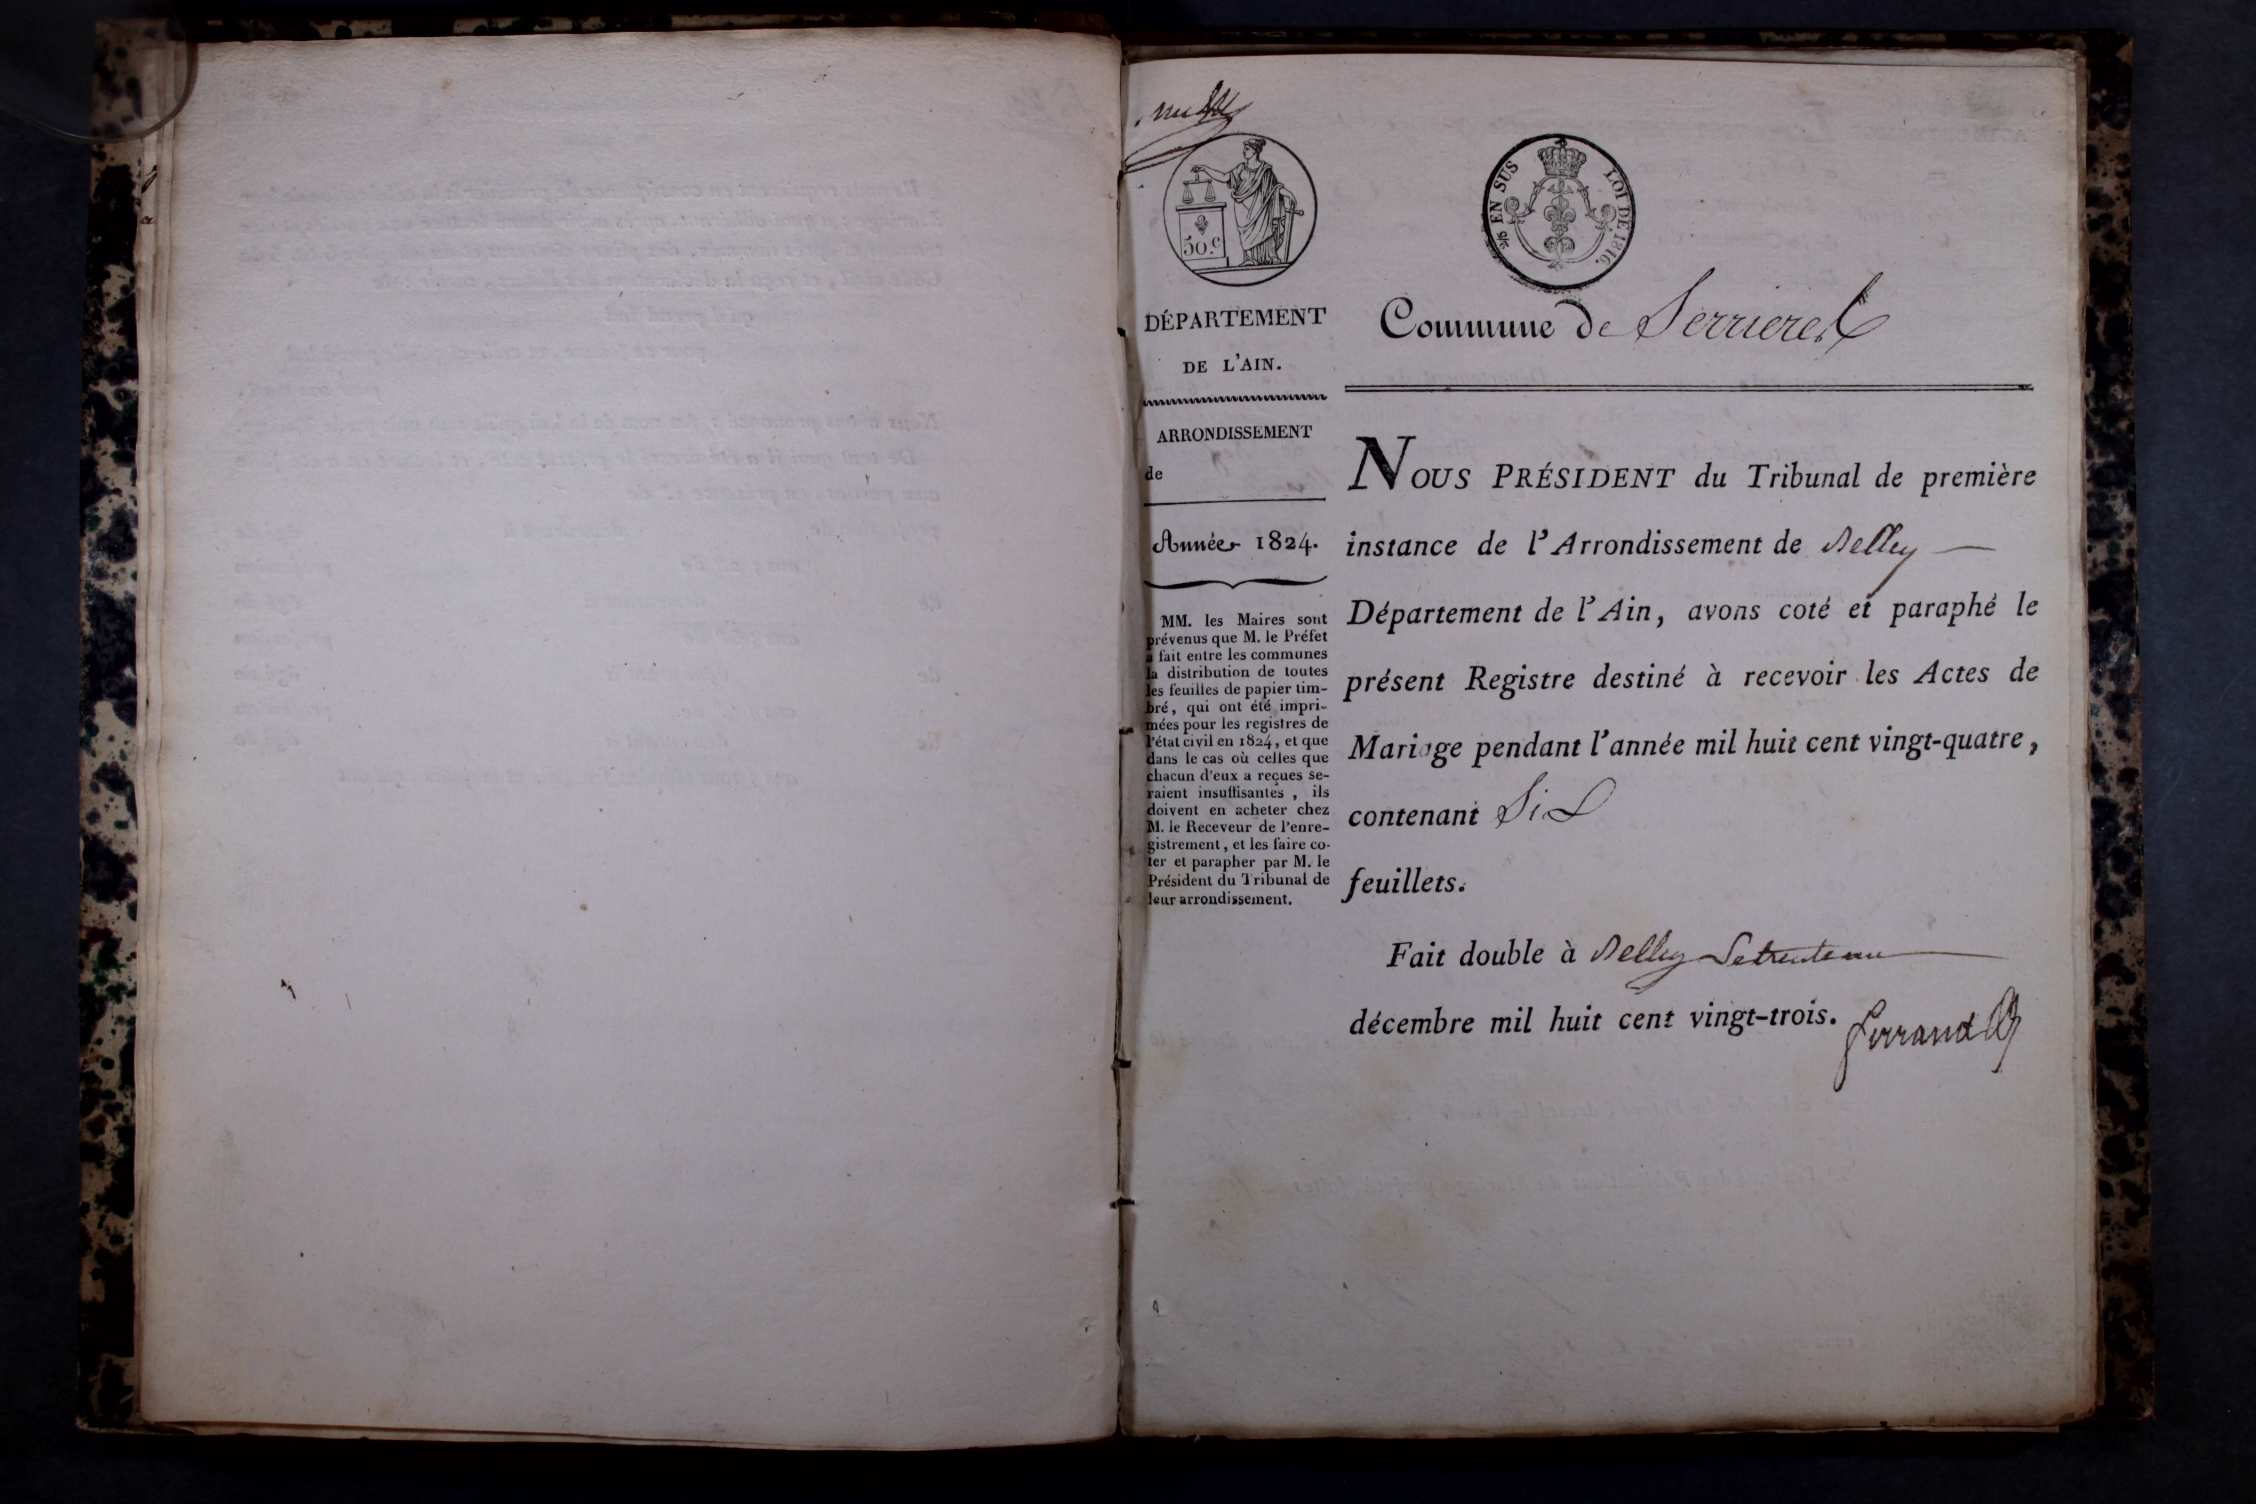 50.c
2/5 EN SUS LOI DE 1816.
DÉPARTEMENT
DE L'AIN.
ARRONDISSEMENT
de
Année 1824.
MM. les Maires sont
prévenus que M. le Préfet
a fait entre les communes
la distribution de toutes
les feuilles de papier tim-
bré, qui ont été impri-
mées pour les registres de
l'état civil en 1824, et que
dans le cas où celles que
chacun d'eux a reçues se-
raient insuffisantes, ils
doivent en acheter chez
M. le Receveur de l'enre-
gistrement, et les faire co-
ter et parapher par M. le
Président du Tribunal de
leur arrondissement.
Commune de Serrieres
NOUS PRÉSIDENT du Tribunal de première
instance de l'Arrondissement de Belley
Département de l'Ain, avons coté et paraphé le
présent Registre destiné à recevoir les Actes de
Mariage pendant l'année mil huit cent vingt-quatre,
contenant Six
feuillets.
Fait double à Belley Le trente un
décembre mil huit cent vingt-trois.
Ferrand